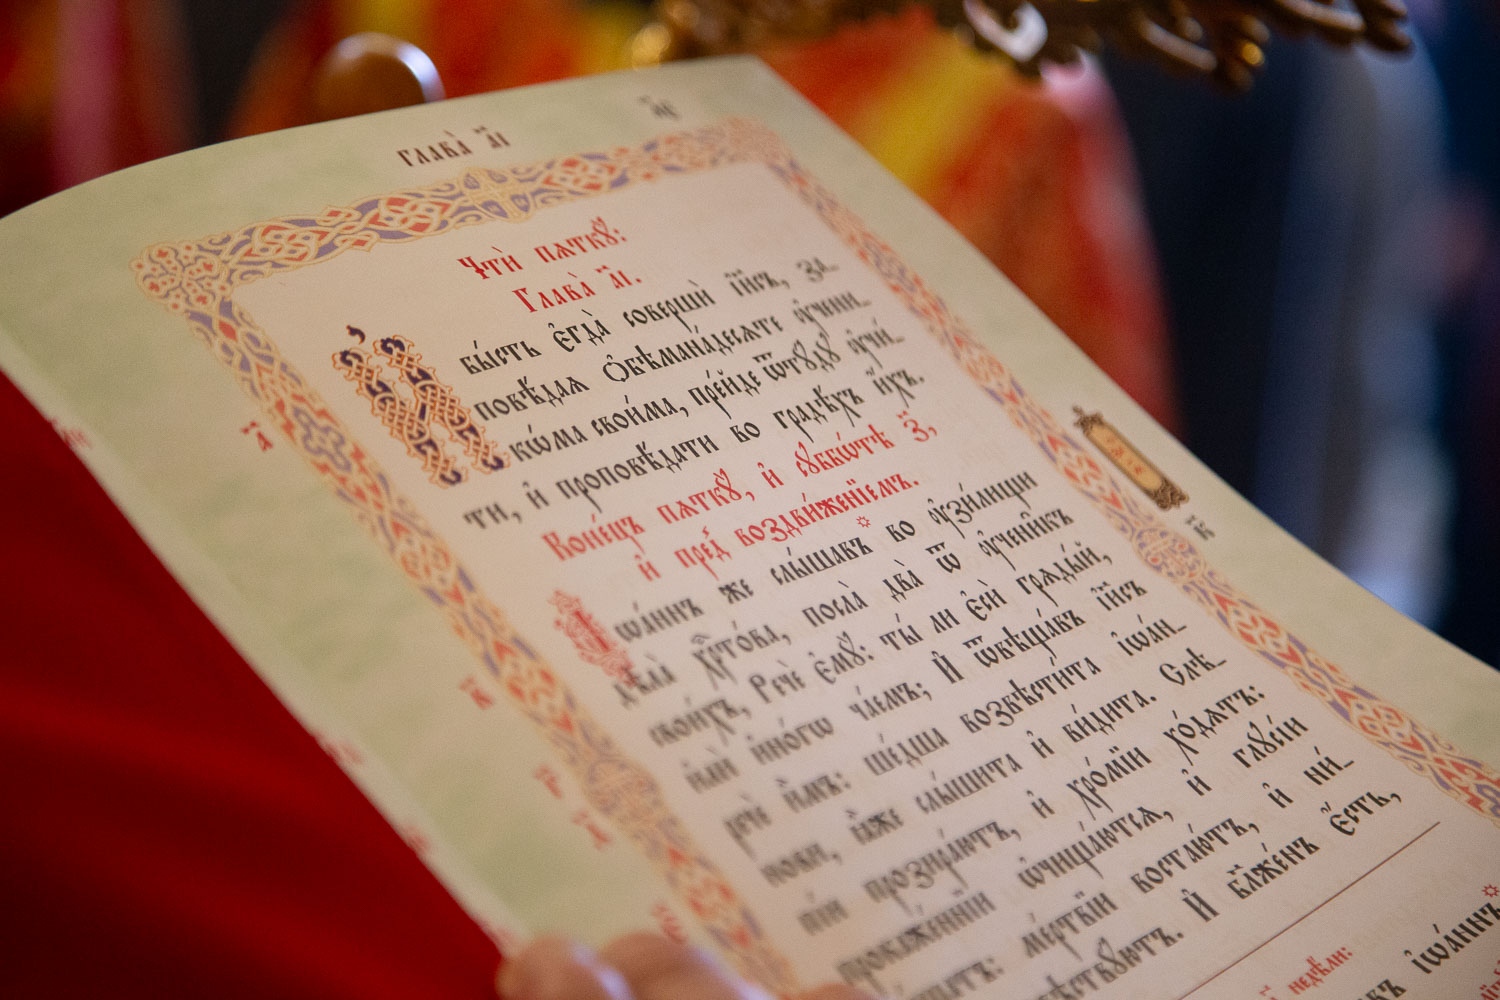 Глава̀ а҃і
Чтѝ пѧткꙋ̀:
Глава̀ а҃і.
И҆ бы́сть є҆гда̀ совершѝ і҆и҃съ, за-
повѣ́даѧ ѻ҆бѣмана́десѧте ᲂу҆чени-
кѡ́ма свои́ма, пре́йде ѿтꙋ́дꙋ ᲂу҆чи́-
ти, и҆ проповѣ́дати во градѣ́хъ и҆́хъ.
Коне́цъ пѧткꙋ̀, и҆ сꙋббѡ́тѣ з҃,
и҆ пред̾ воздви́женїемъ.
І҆ѡа́ннъ же слы́шавъ во ᲂу҆зи́лищи
дѣла̀ хрⷭ҇то́ва, посла̀ два̀ ѿ ᲂу҆чени̑къ
свои́хъ, Речѐ є҆мꙋ̀: ты́ ли є҆сѝ грѧды́й,
и҆лѝ и҆но́гѡ ча́емъ; И҆ ѿвѣща́въ і҆и҃съ
речѐ и҆̀мъ: ше́дша возвѣсти́та і҆ѡа́н-
нови, ꙗ҆̀же слы́шита и҆ ви́дита. Слѣ-
пі́и прозира́ютъ, и҆ хро́мїи хо́дѧтъ:
прокаже́ннїи ѡ҆чища́ютсѧ, и҆ глꙋсі́и
ме́ртвїи востаю́тъ, и҆ ни́-
И҆ бл҃же́нъ є҆́сть,
недѣ́ли:
і҆ѡа́ннъ
к҃